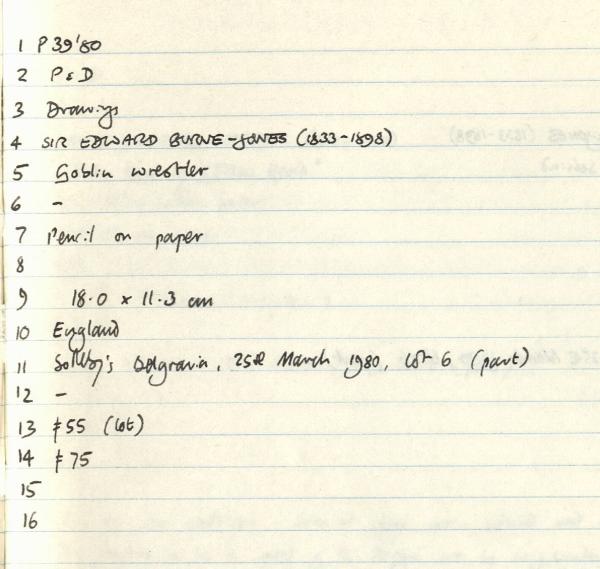 1 P39'80
2 P&D
3 Drawings
4 SIR EDWARD BURNE-JONES (1833-1898)
5 Goblin wrestler
6 -
7 Pencil on paper
8
9 18.0 x 11.3 cm
10 England
11 Sotheby's Belgravia, 25th March 1980, lot 6 (part)
12 -
13 £55 (lot)
14 £75
15
16